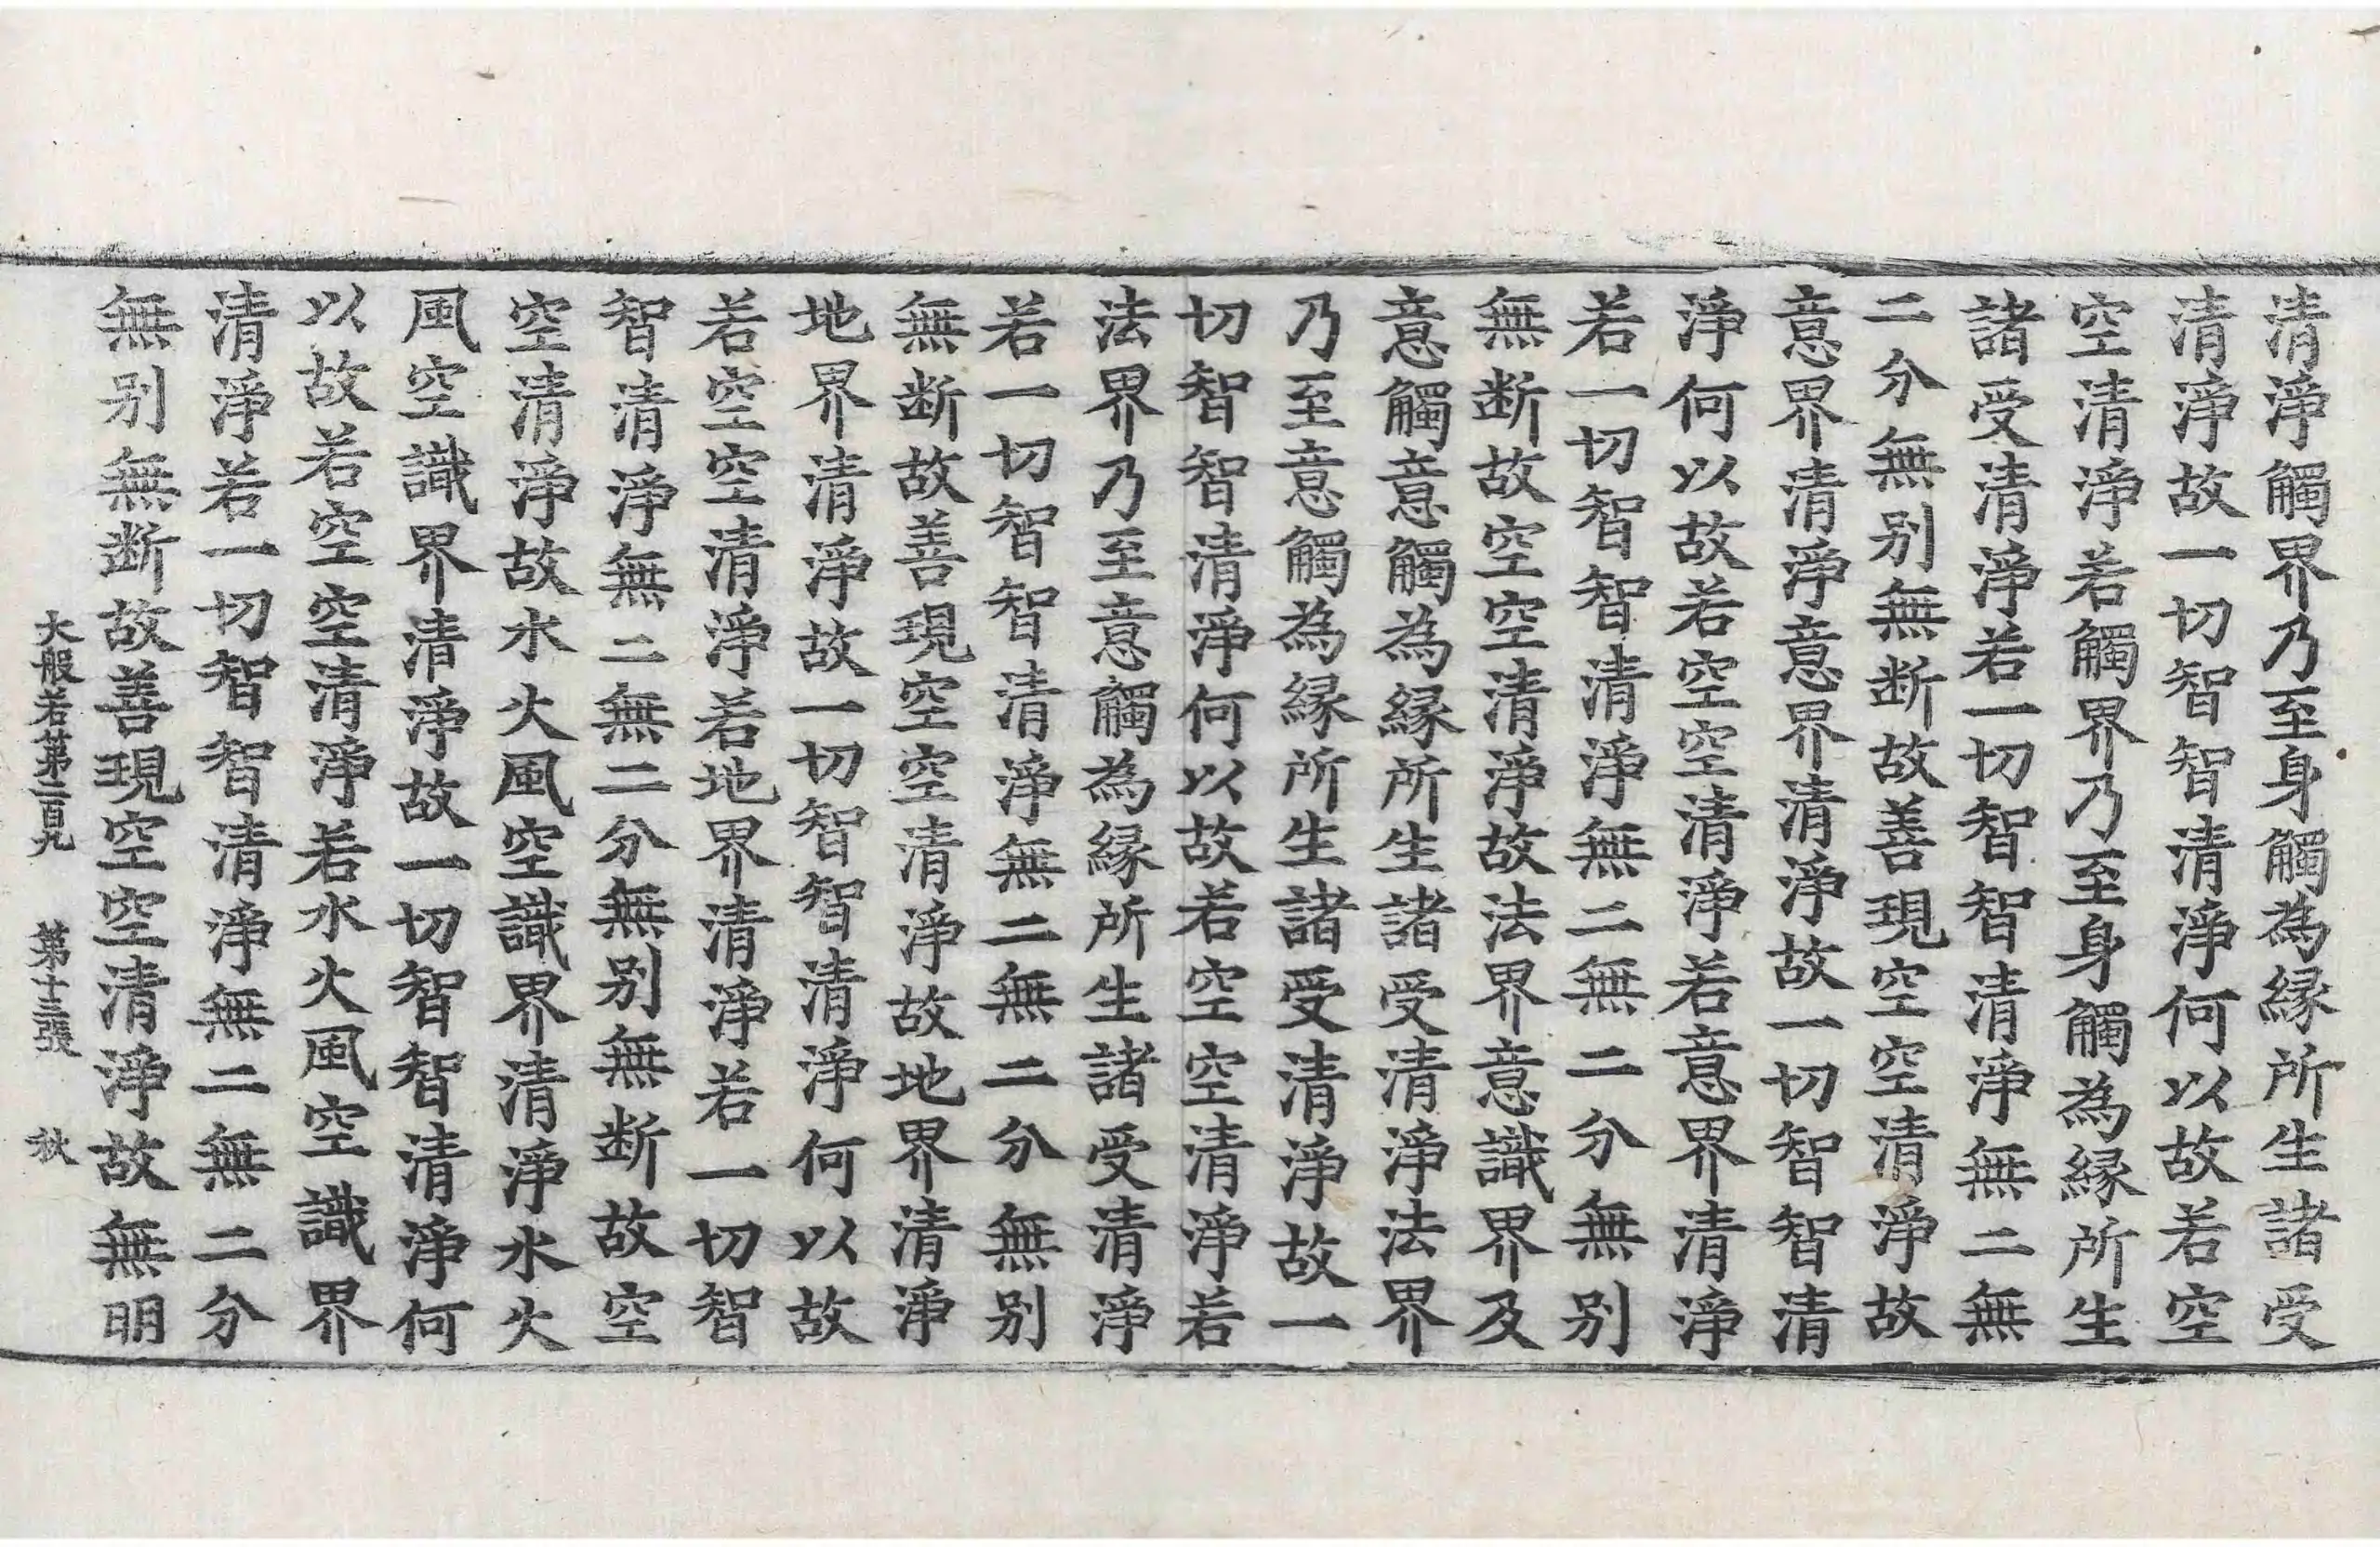 清淨觸界乃至身觸為緣所生諸受
清淨故一切智智清淨何以故若空
空清淨若觸界乃至身觸為緣所生
諸受清淨若一切智智清淨無二無
二分無別無断故善現空空清淨故
意界清淨意界清淨故一切智智清
淨何以故若空空清淨若意界清淨
若一切智智清淨無二無二分無別
無断故空空清淨故法界意識界及
意觸意觸為緣所生諸受清淨法界
乃至意觸為緣所生諸受清淨故一
切智智清淨何以故若空空清淨若
法界乃至意觸為緣所生諸受清淨
若一切智智清淨無二無二分無別
無断故善現空空清淨故地界清淨
地界清淨故一切智智清淨何以故
若空空清淨若地界清淨若一切智
智清淨無二無二分無別無断故空
空清淨故水火風空識界清淨水火
風空識界清淨故一切智智清淨何
以故若空空清淨若水火風空識界
清淨若一切智智清淨無二無二分
無別無断故善現空空清淨故無明
大般若第二百九 第十三張 秋